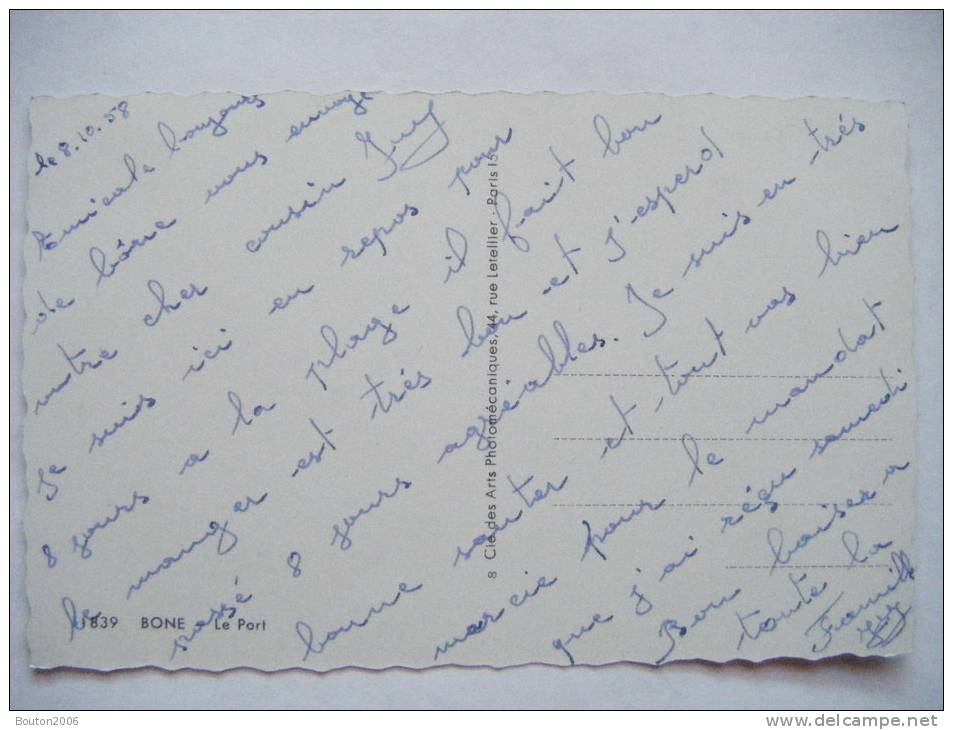 le 8.10.58
Amicale bonjours
de bône vous envoye
votre cher cousin Guy
Je suis ici en repos pour
8 jours a la plage il fait bon
le manger est très bon et j'esperd
passé 8 jours agréables. Je suis en très
bonne santer et tout vas bien
mercie pour le mandat
que j'ai réçu samedi
Bon baiser a
toute la
Famille
Guy
1839 BONE Le Port
8 Cie des Arts Photomécaniques, 44, rue Letellier - Paris 15
Bouton2006
www.delcampe.net